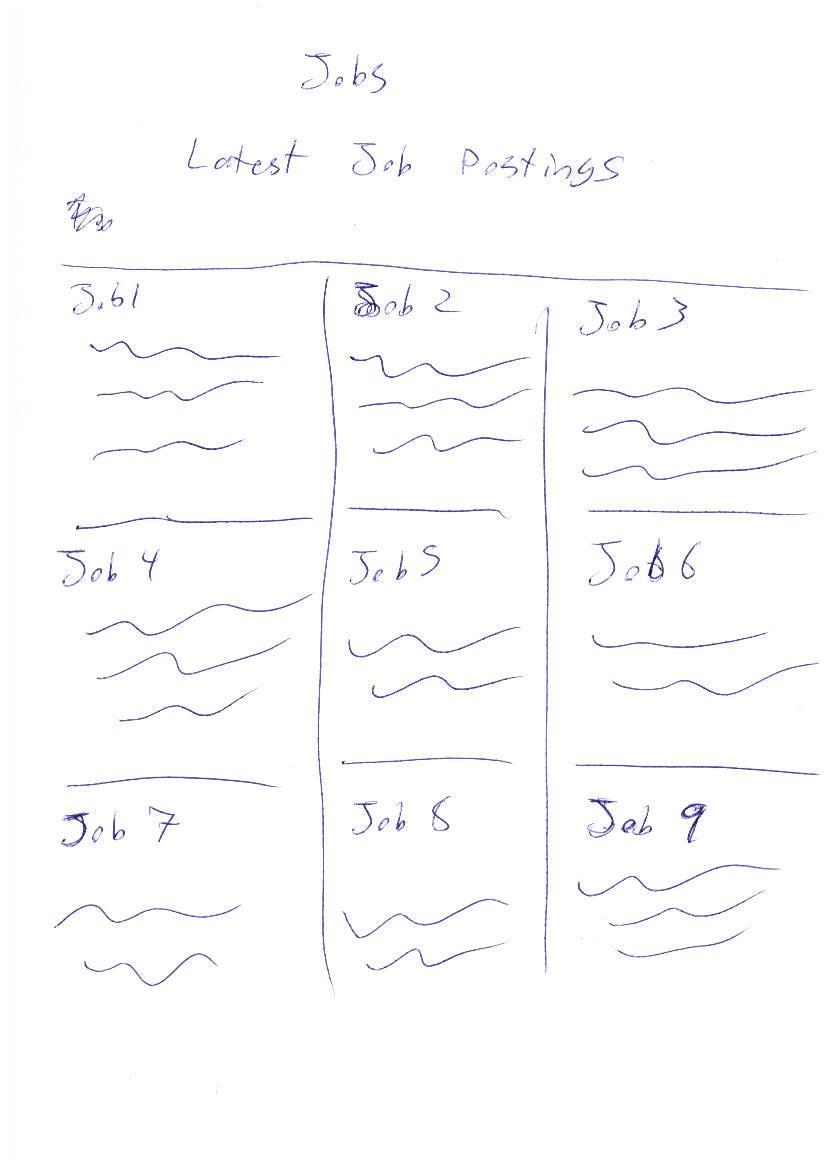 Jobs
Latest Job Postings
Job 1
Job 2
Job 3
Job 4
Job 5
Job 6
Job 7
Job 8
Job 9